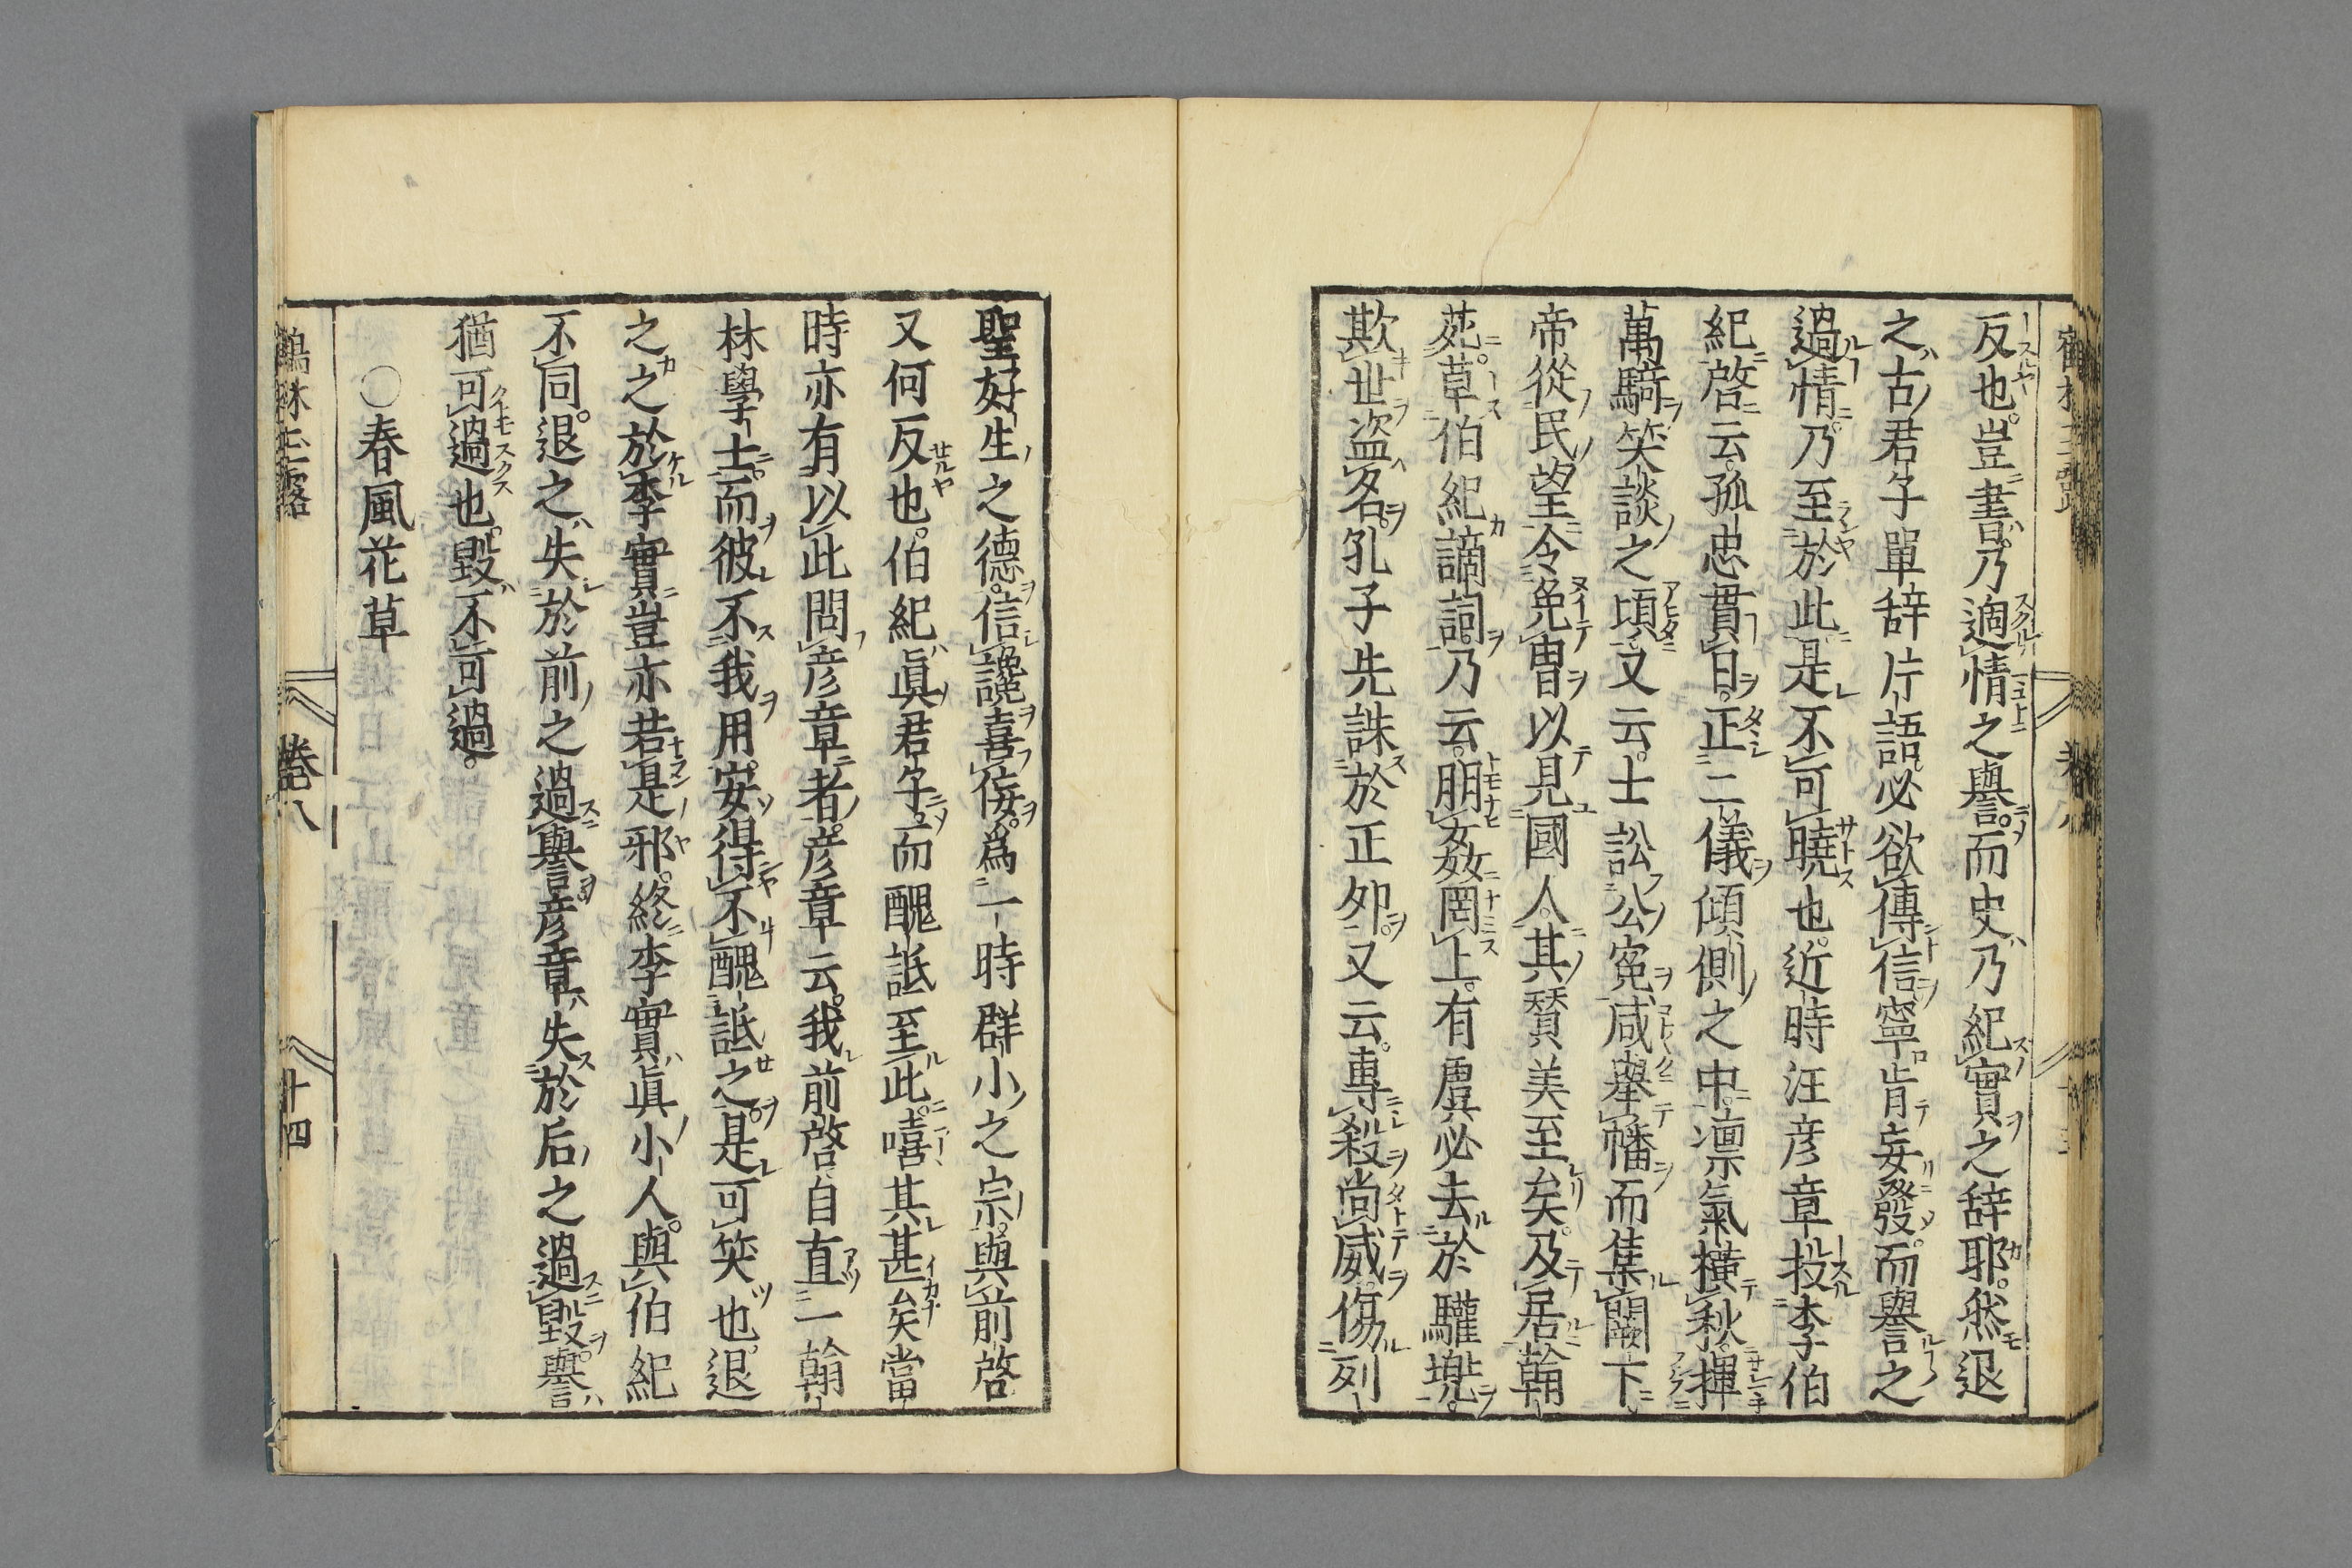 反也。豈書乃適情之譽。而史乃紀實之辞耶。然退
之古君子單辞片語必欲傳信寧肯妄發。而譽之
過情乃至於此是不可曉也。近時汪彦章投李伯
紀啓云。孤忠貫日。正二儀傾側之中。凛氣横秋。揮
萬騎笑談之頃。又云。士訟公寃。咸舉幡而集闕下
帝從民望。令免冑以見國人。其賛美至矣。及居翰
苑。草伯紀謫詞。乃云。朋姦罔上。有虞必去於驩兠。
欺世盗名。孔子先誅於正夘。又云。專殺尚威。傷列
聖好生之德。信讒喜佞。爲一時群小之宗。與前啓
又何反也。伯紀眞君子。而醜詆至此。嘻其甚矣當
時亦有以此問彦章者。彦章云。我前啓自直一翰
林學士。而彼不我用。安得不醜詆之。是可笑也。退
之之於李實豈亦若是邪。終李實眞小人。與伯紀
不同。退之失於前之過譽。彦章失於后之過毀。譽
猶可過也。毀不可過。
○春風花草
鶴林玉露 卷八 十四